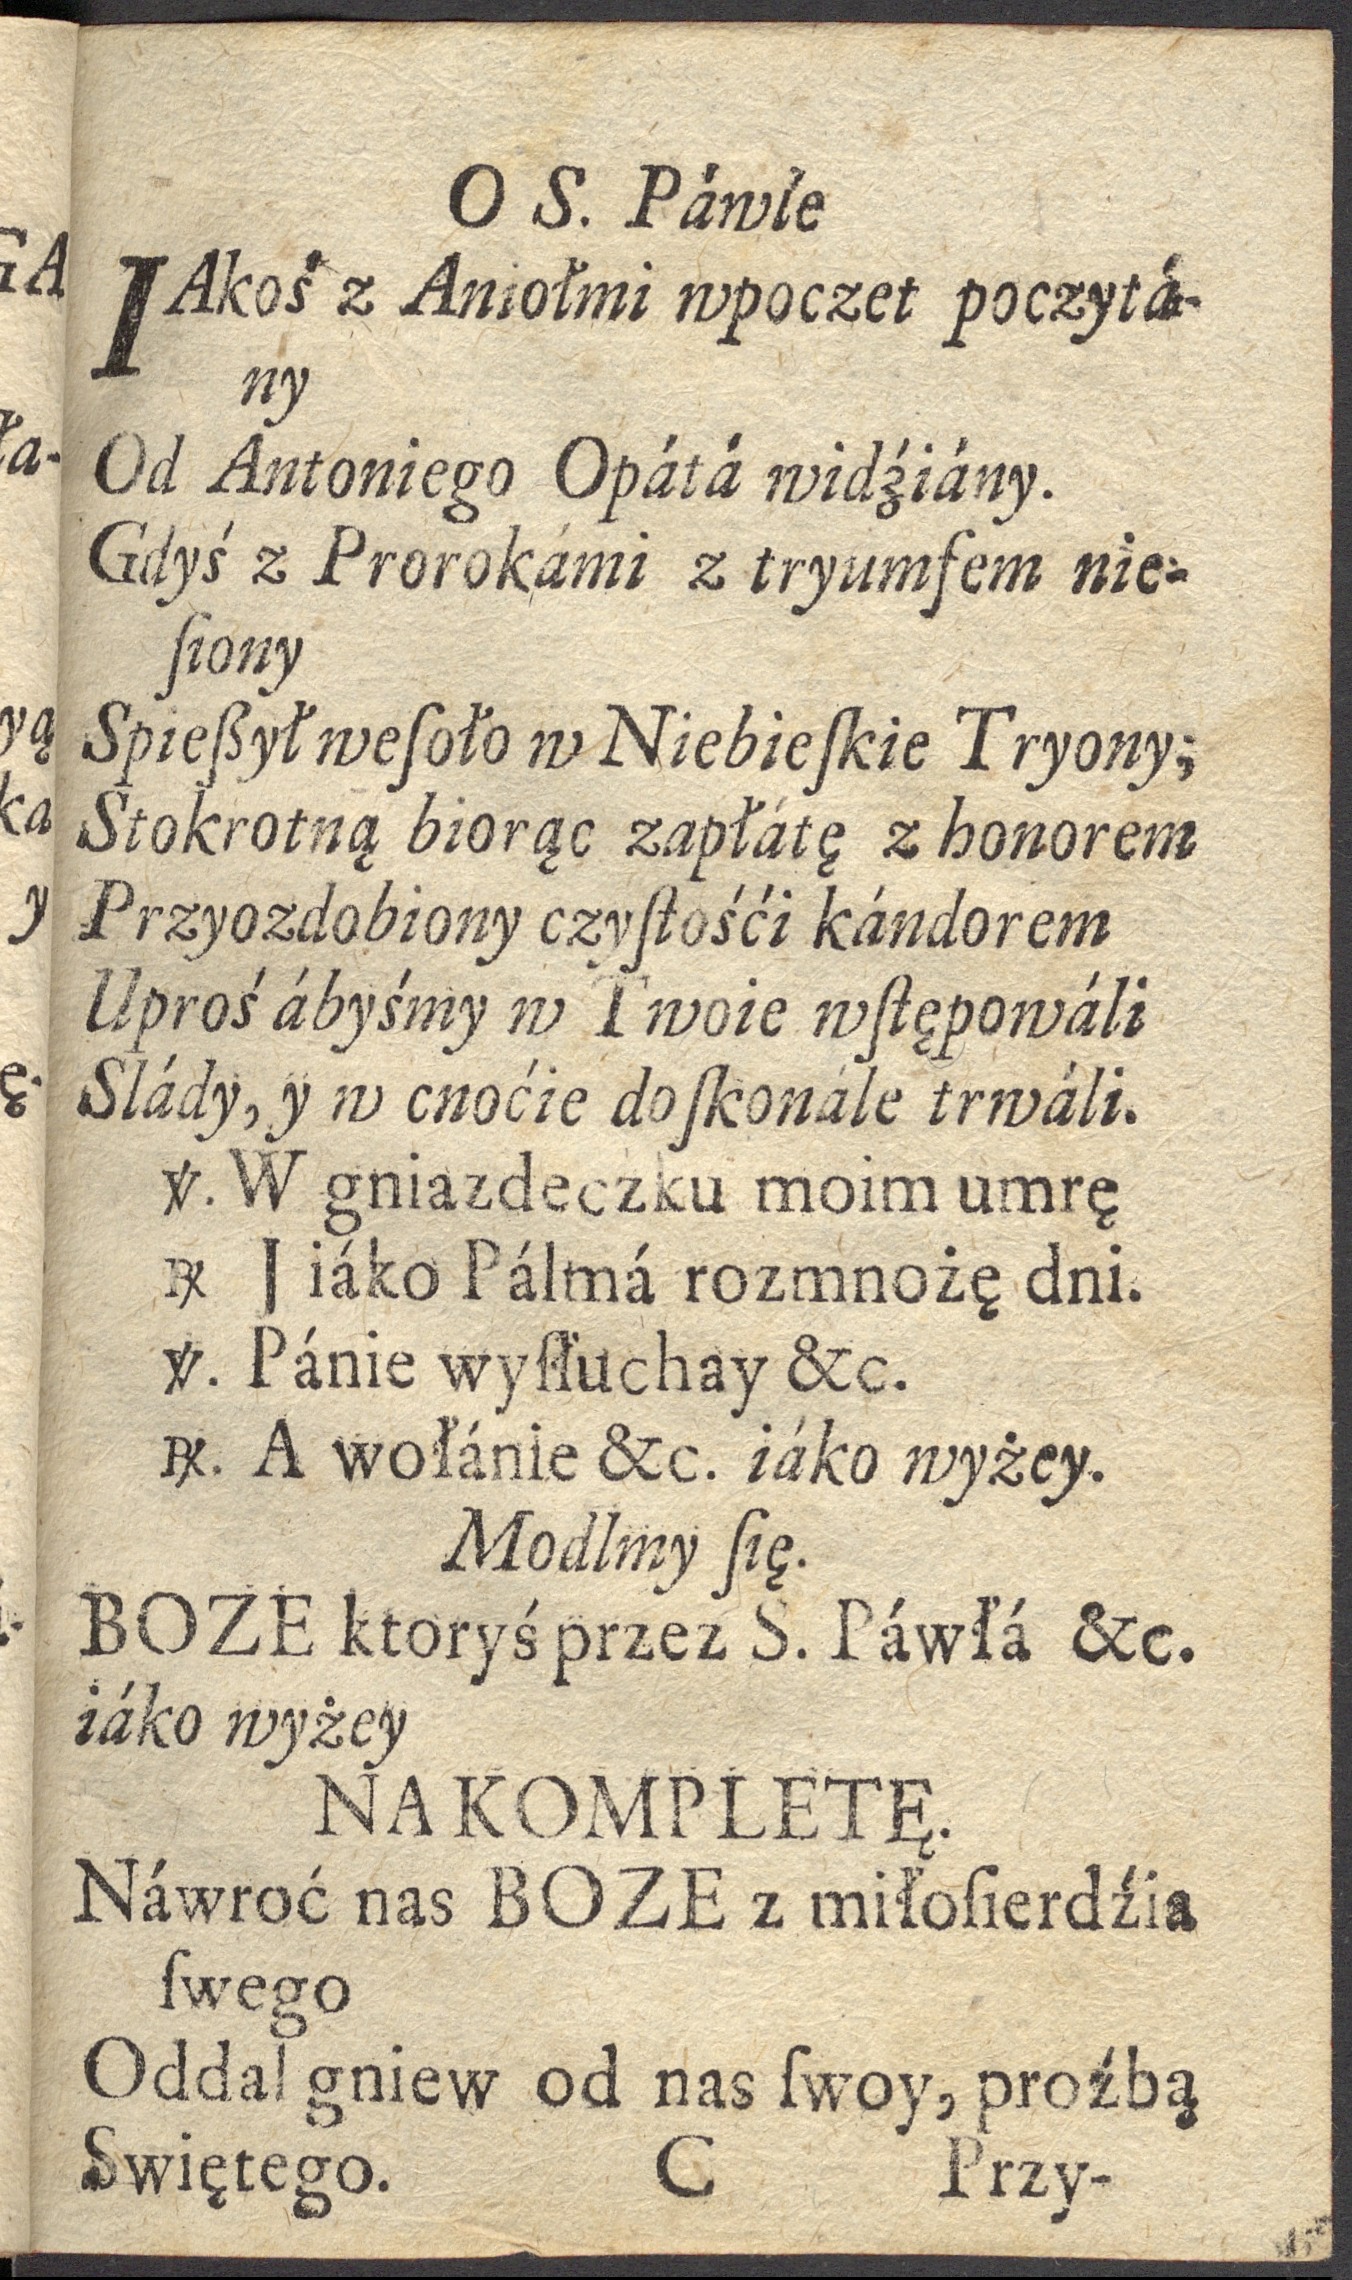 O S. Páwle
IAkoś z Aniołmi wpoczet poczytá-
ny
Od Antoniego Opátá widźiány.
Gdyś z Prorokámi z tryumfem nie-
ſiony
Spießył weſoło w Niebieſkie Tryony;
Stokrotną biorąc zapłátę z honorem
Przyozdobiony czyſtośći kándorem
Uproś ábyśmy w Twoie wſtępowáli
Slády, y w cnoćie doſkonále trwáli.
℣. W gniazdeczku moim umrę
℞ J iáko Pálmá rozmnożę dni.
℣. Pánie wyſłuchay &c.
℞. A wołánie &c. iáko wyżey.
Modlmy ſię.
BOZE ktoryś przez S. Páwłá &c.
iáko wyżey
NA KOMPLETĘ.
Náwroć nas BOZE z miłoſierdźia
ſwego
Oddal gniew od nas ſwoy, proźbą
Swiętego. C Przy-